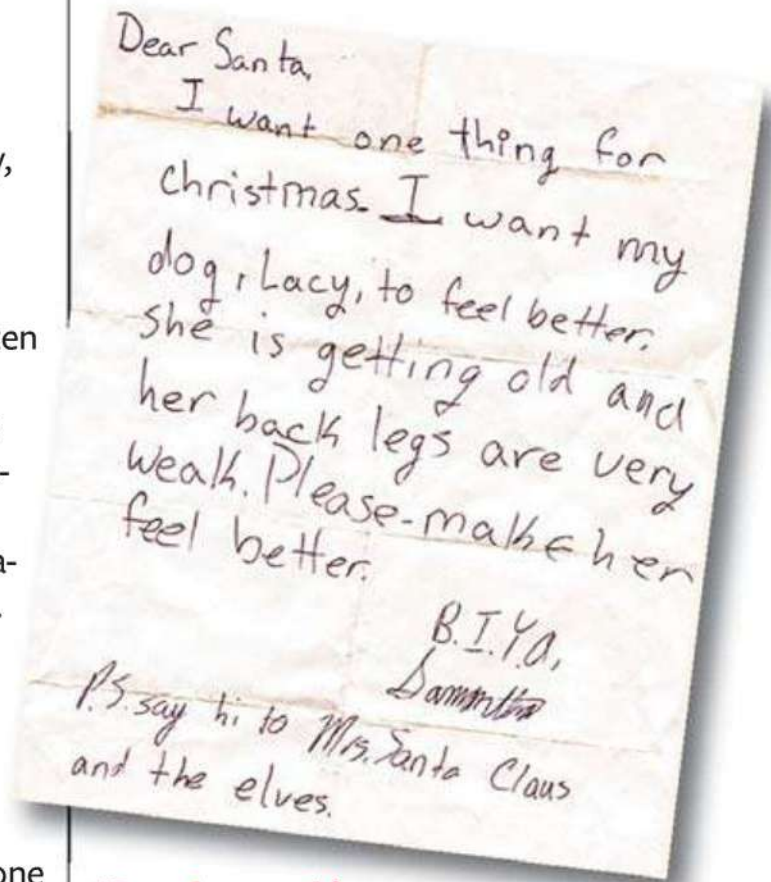 Dear Santa,
I want one thing for
christmas. I want my
dog, Lacy, to feel better.
She is getting old and
her back legs are very
weak. Please-make her
feel better.
B.I.Y.A,
P.S. say hi to Mrs. Santa Claus
and the elves.
one